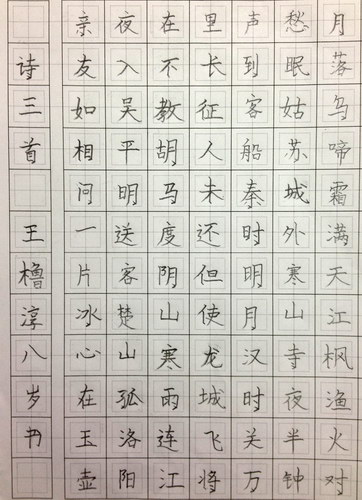 月落乌啼霜满天江枫渔火对
愁眠姑苏城外寒山寺夜半钟
声到客船秦时明月汉时关万
里长征人未还但使龙城飞将
在不教胡马度阴山寒雨连江
夜入吴平明送客楚山孤洛阳
亲友如相问一片冰心在玉壶
诗三首 王橹淳八岁书